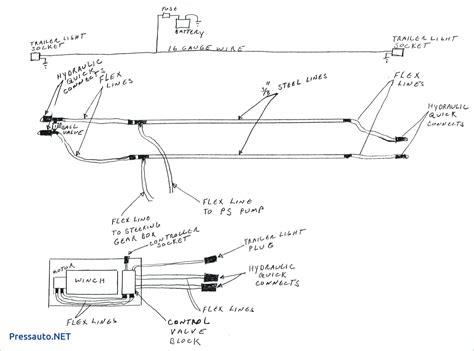 FUSE
BATTERY
TRAILER LIGHT
SOCKET
16 GAUGE WIRE
TRAILER LIGHT
SOCKET
HYDRAULIC
QUICK
CONNECTS
FLEX
LINES
3/8"
STEEL LINES
FLEX
LINES
HYDRAULIC
QUICK
CONNECTS
BALL
VALVE
FLEX LINE
TO PS PUMP
FLEX LINE
TO STEERING
GEAR BOX
CONTROLLER
SOCKET
TRAILER LIGHT
PLUG
MOTOR
WINCH
HYDRAULIC
QUICK
CONNECTS
FLEX LINES
CONTROL
VALVE
BLOCK
FLEX LINES
Pressauto.NET